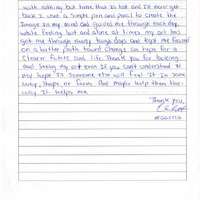 with nothing, but time that is lost and I'll never get
back. I used a simple pen and pencil to create the
Image in my mind God guided me through each day.
while feeling lost and alone at times my art has
got me through many tough days and kept me focused
on a better path toward change and hope for a
clearer future and life. Thank you for looking
and seeing my art even if you can't understand it
my hope is someone else will feel it in some
way, shape, or form. And maybe help them the
way it helps me.
Thank you,